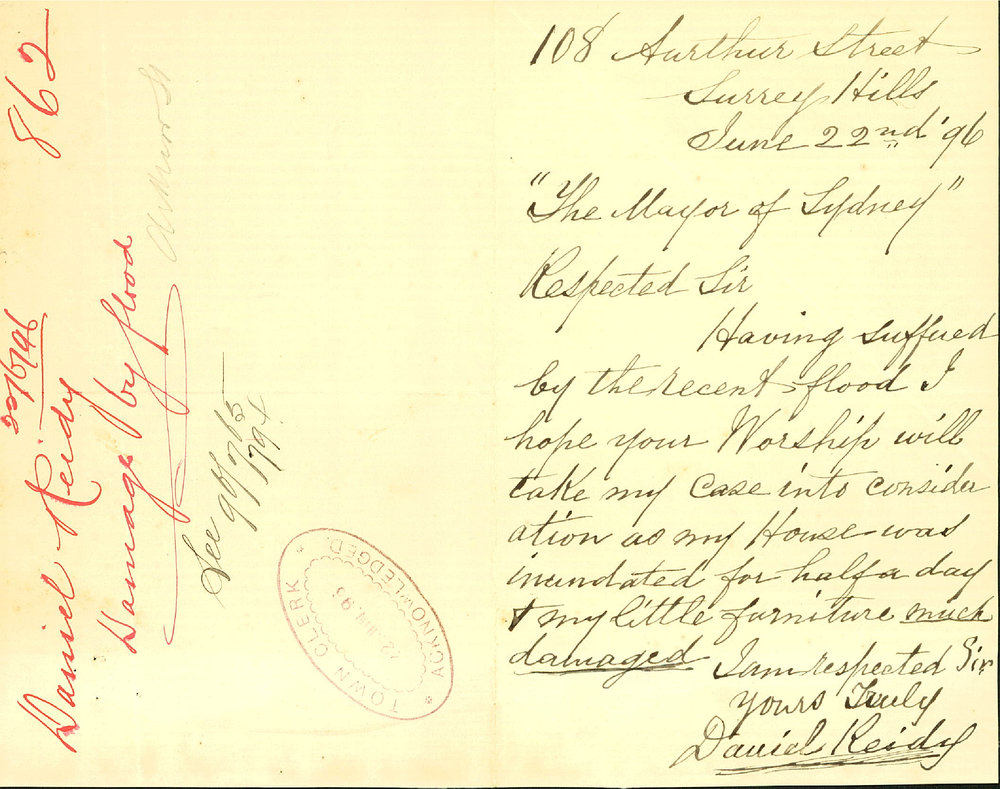 108 Aurthur Street
Surrey Hills
June 22nd '96
"The Mayor of Sydney"
Respected Sir
Having suffued
by the recent flood I
hope your Worship will
take my Case into consider
ation as my House was
inundated for half a day
& my little furniture much
damaged I am respected Sir
yours Truly
Daniel Reidy
862
22/6/96
Daniel Reidy
Damage by flood
See 96/1765
1794
TOWN CLERK
ACKNOWLEDGED.